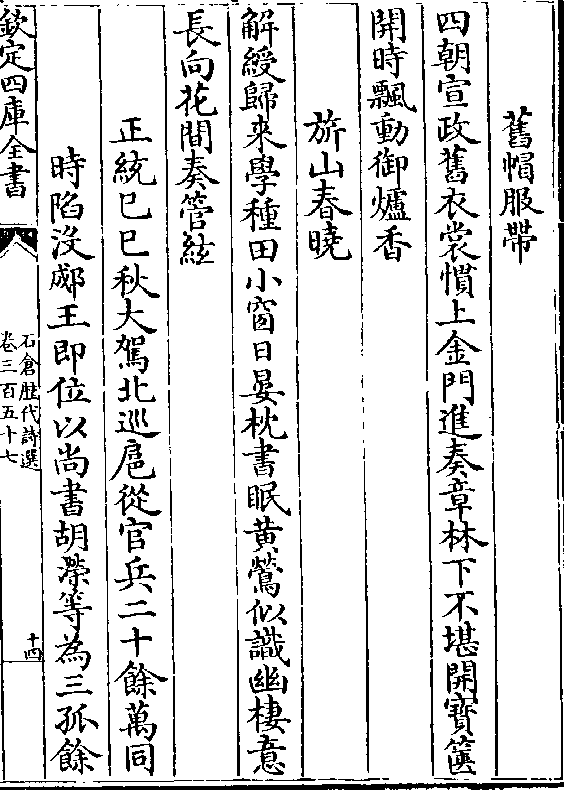 舊帽服帶
四朝宣政舊衣裳慣上金門進奏章林下不堪開寶篋
開時飄動御爐香
旂山春曉
解綬歸來學種田小窗日晏枕書眠黃鶯似識幽棲意
長向花間奏管絃
正統己巳秋大駕北巡扈從官兵二十餘萬同
時陷沒郕王即位以尚書胡濙等為三孤餘
欽定四庫全書
石倉歷代詩選
卷三百五十七
十四